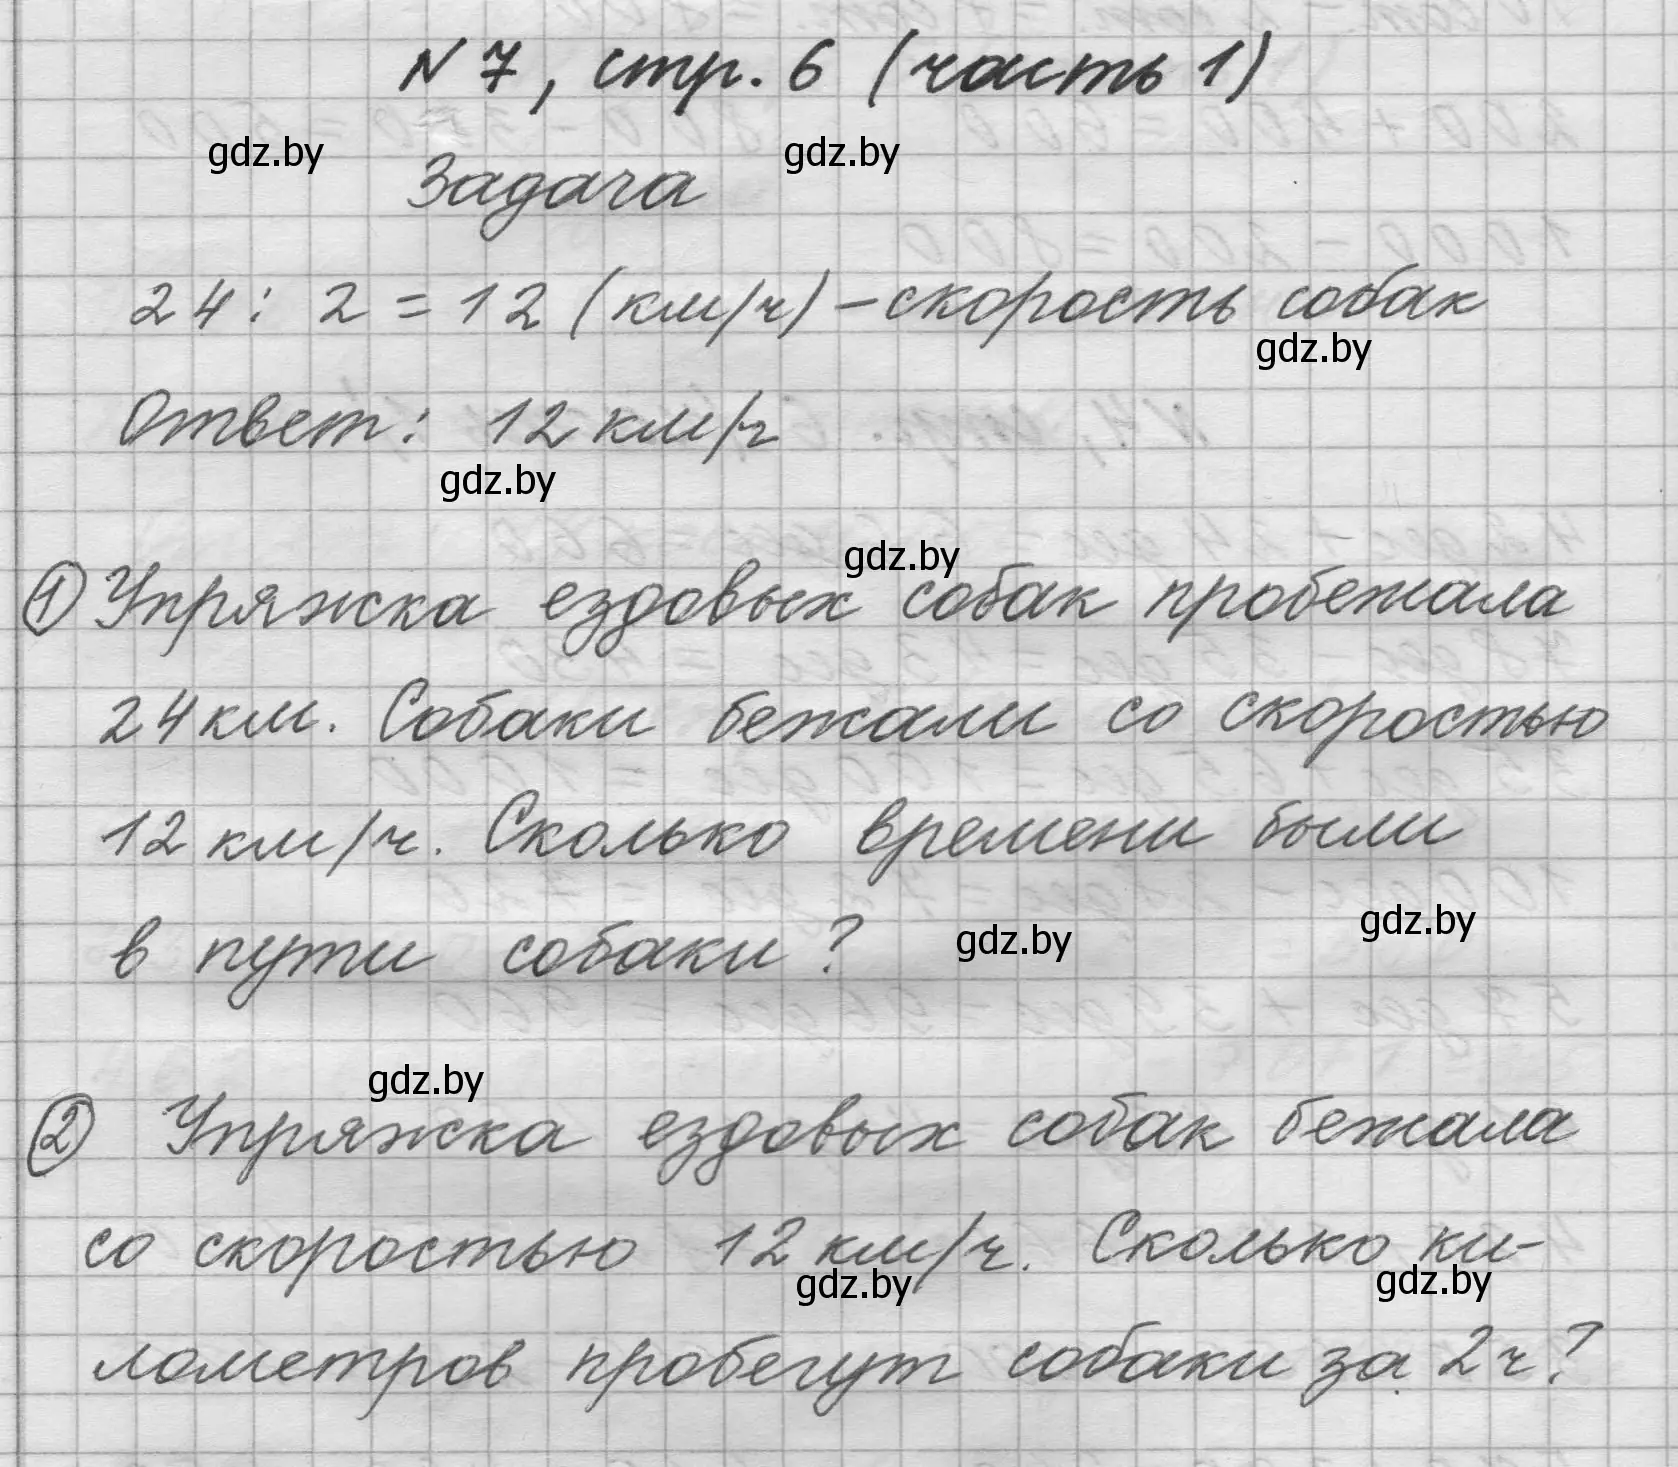 N 7, стр. 6 (часть 1)
gdz.by gdz.by
Задача
24 : 2 = 12 (км/ч) – скорость собак
gdz.by
Ответ: 12 км/ч
gdz.by
gdz.by
① Упряжка ездовых собак пробежала
24 км. Собаки бежали со скоростью
12 км/ч. Сколько времени были
в пути собаки? gdz.by gdz.by
gdz.by
② Упряжка ездовых собак бежала
со скоростью 12 км/ч. Сколько ки-
gdz.by gdz.by
лометров пробегут собаки за 2 ч?